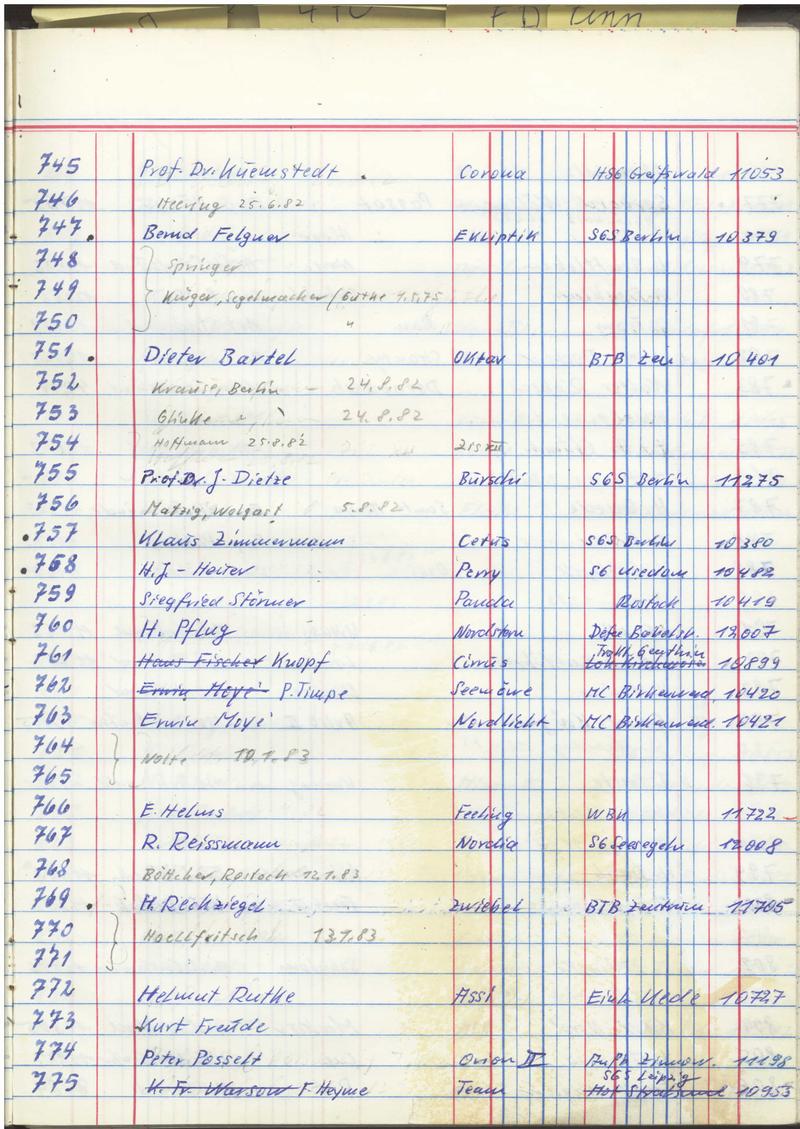 745 Prof. Dr. Kuemstedt Corona HSG Greifswald 11053
746 Heering 25.6.82
747 Bernd Felgner Ekliptik SGS Berlin 10379
748 Springer
749 Krüger, Segelmacher / Güthe 1.5.75
750 "
751 Dieter Bartel Oktav BTB 10401
752 Krause, Berlin - 24.8.82
753 Glinke " 24.8.82
754 Hoffmann 25.8.82
755 Prof. Dr. J. Dietze Burschi SGS Berlin 11275
756 Matzig, Wolgast 5.8.82
757 Klaus Zimmermann Cetus SGS Berlin 10380
758 H.J. - Heuer Perry SG Usedom 10482
759 Siegfried Störmer Panda Rostock 10419
760 H. Pflug Nordstern Defa Babelsb. 12007
761 Hans Fischer Knopf Cirrus Lok Kirchmöser 10899
762 Erwin Moyé P. Timpe Seemöwe MC Birkenwerd. 10420
763 Erwin Moyé Nordlicht MC Birkenwerd. 10421
764 Nolte 10.1.83
765
766 E. Helms Feeling WBN 11722
767 R. Reissmann Nordia SG Seesegeln 12008
768 Böttcher, Rostock 12.1.83
769 H. Reckziegel Zwiebel BTB Zentrum 11705
770 13.1.83
771
772 Helmut Rutke Assi Einh. Uede 10727
773 Kurt Freude
774 Peter Posselt Orion II Aufb. Zinnow. 11198
SGS Leipzig
775 K. Fr. Warsow F. Heyme Team Mot Stralsund 10953